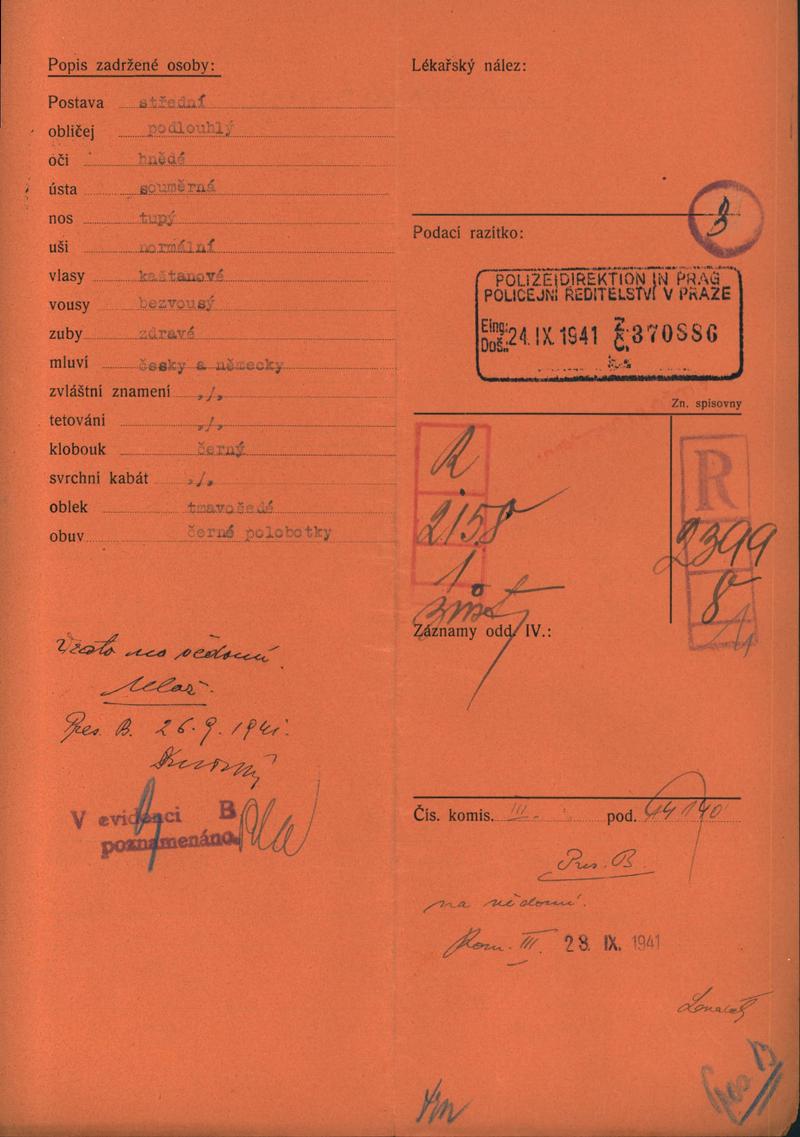 Popis zadržené osoby:
Postava střední
obličej podlouhlý
oči hnědé
ústa souměrná
nos tupý
uši normální
vlasy kaštanové
vousy bezvousý
zuby zdravé
mluví česky a německy
zvláštní znamení „/„
tetování „/„
klobouk černý
svrchní kabát „/„
oblek tmavošedé
obuv černé polobotky
Vzato na vědomí
Pres. B. 26. 9. 1941.
V evidenci B
poznamenáno.
Lékařský nález:
3
Podací razítko:
POLIZEIDIREKTION IN PRAG
POLICEJNÍ ŘEDITELSTVÍ V PRAZE
Eing.: Doš.: 24. IX. 1941 Z. Č. 370886
Zn. spisovny
R
2158
1
R
2399
8
Záznamy odd. IV.:
Čís. komis. III. pod. 44190
Pres. B.
na vědomí.
Kom. III. 23. IX. 1941